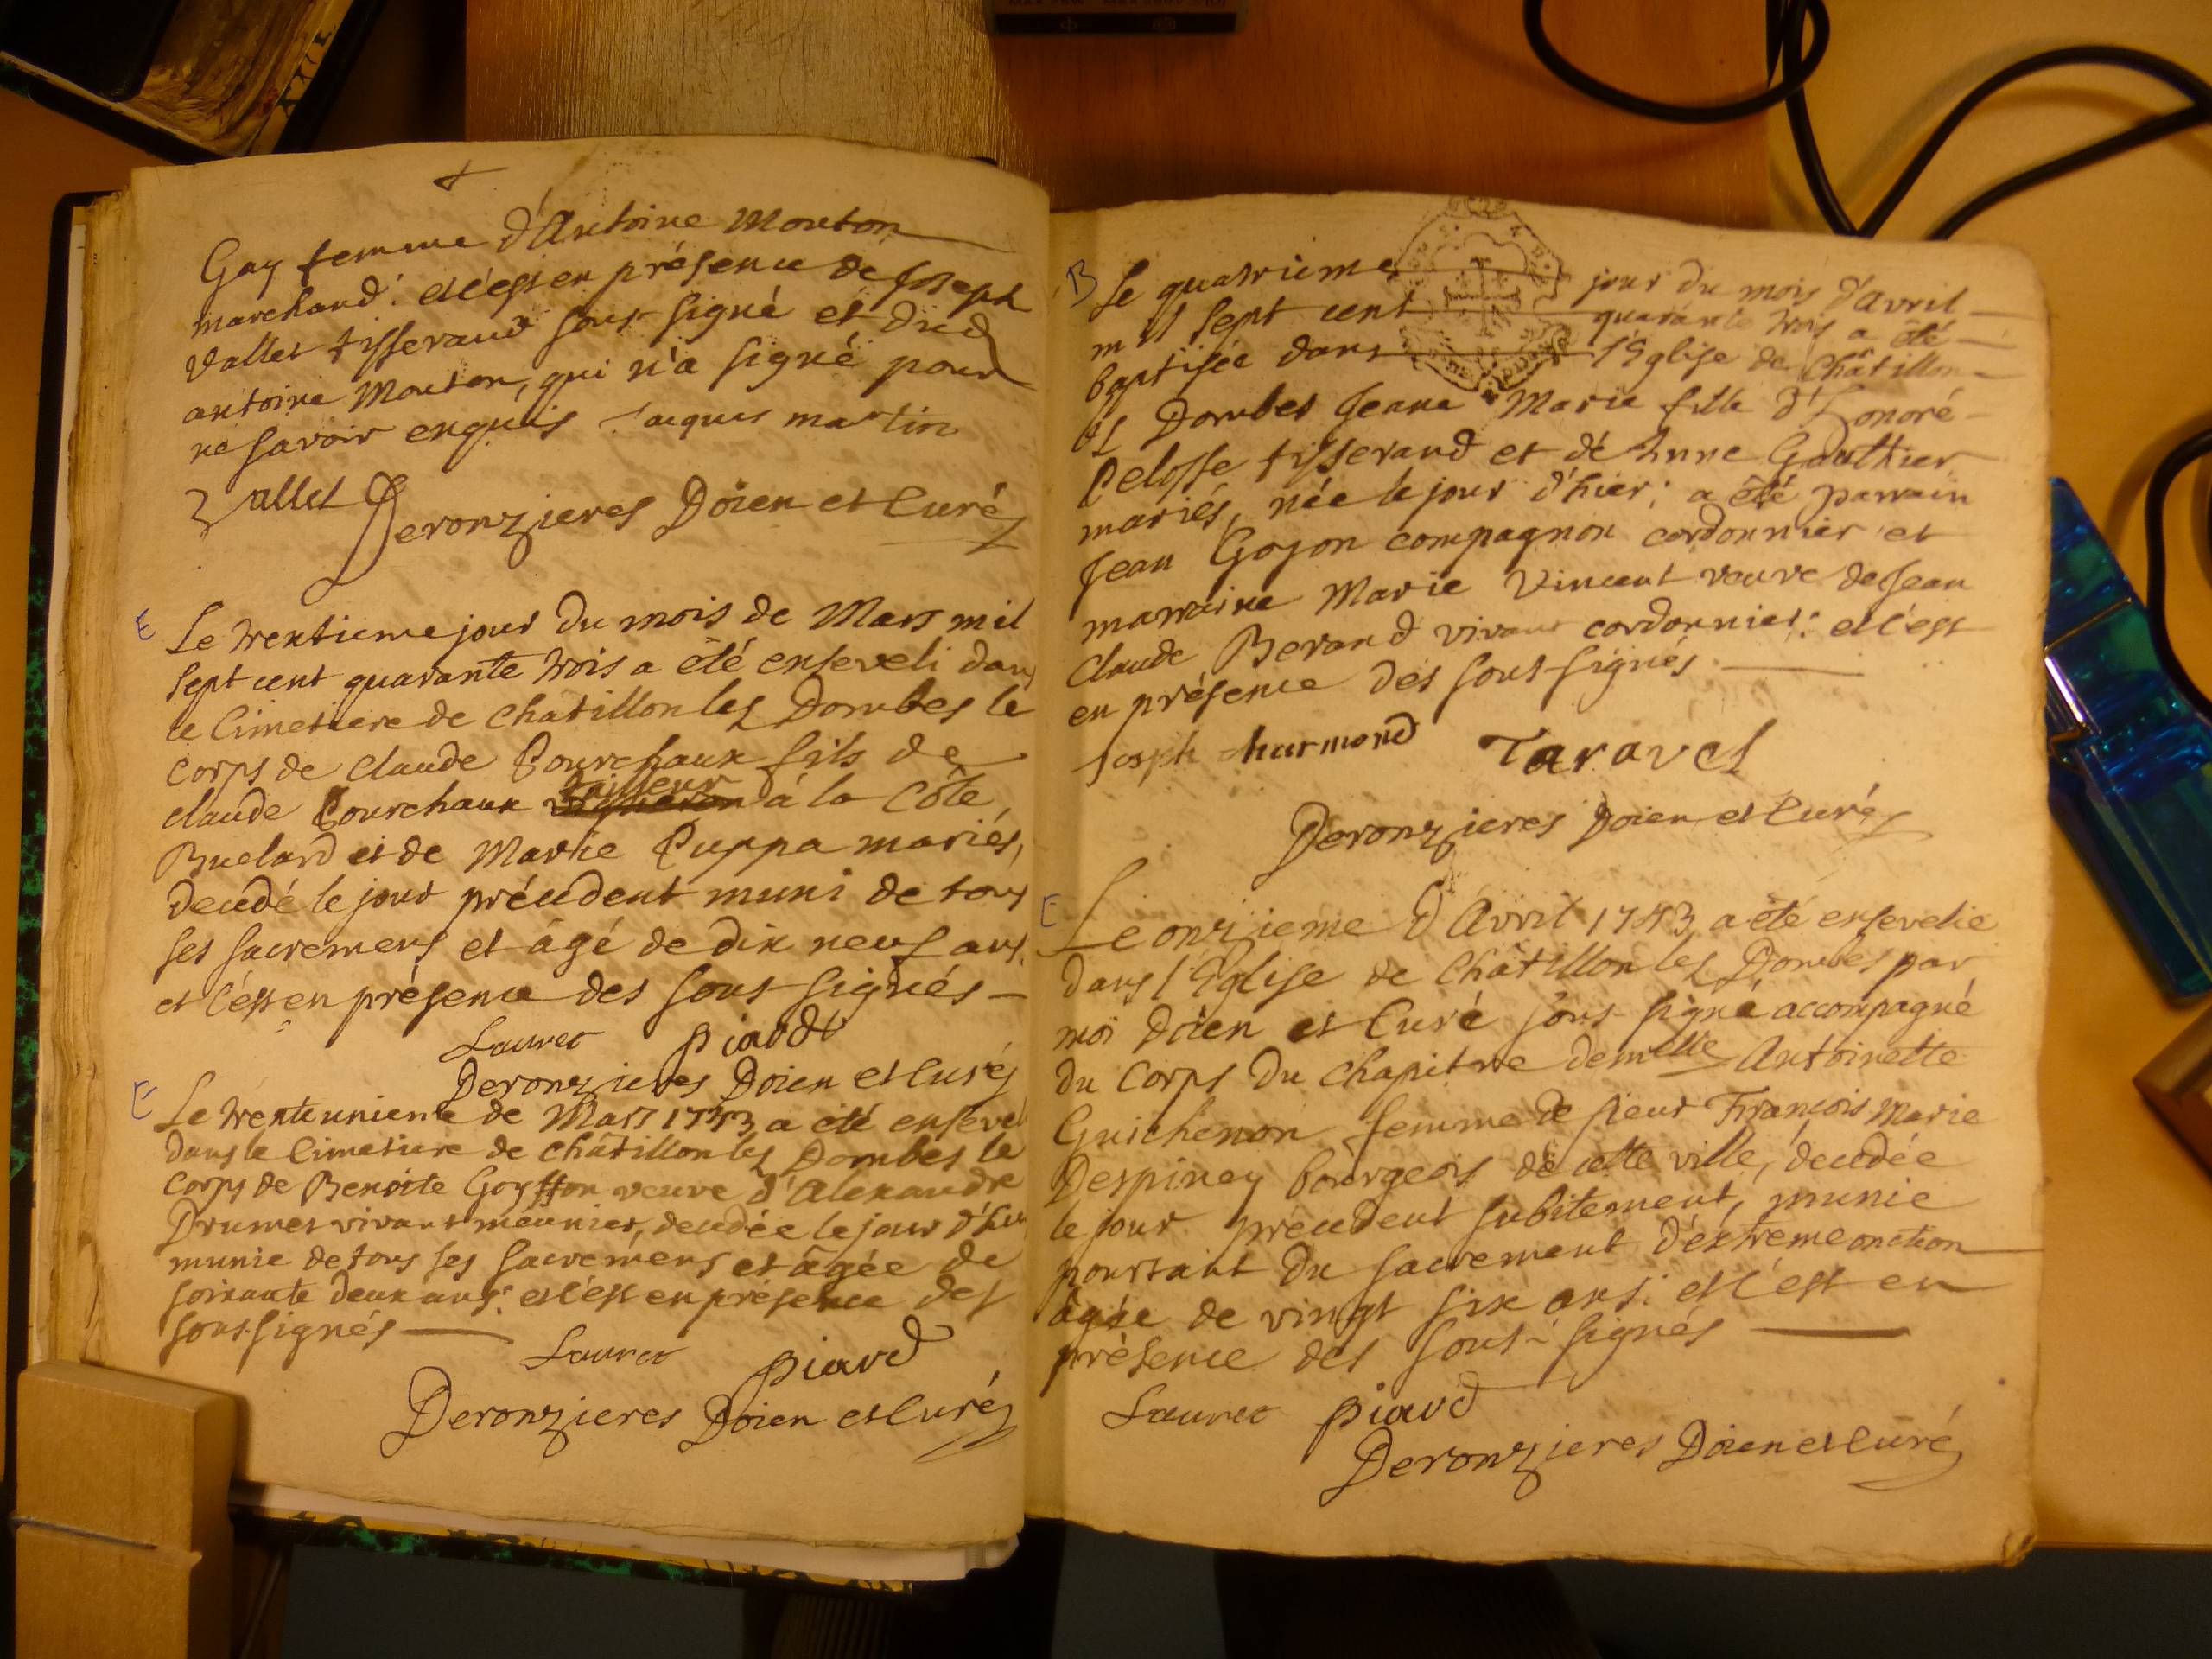 Gay femme d'Antoine Mouton
marchand: et c'est en présence de Joseph
Vallet tisserand sous-signé et dud
antoine Mouton, qui n'a signé pour
ne savoir enquis Jacques martin
Vallet Deronzieres Doien et Curé
E Le trentieme jour du mois de Mars mil
sept cent quarante trois a été enseveli dans
le Cimetiere de Châtillon les Dombes le
corps de Claude Pourchaux fils de
claude Pourchaux tailleur à la Côte,
Buelard et de Marie Puppa mariés,
decédé le jour précedent muni de tous
ses sacremens et âgé de dix neuf ans,
et c'est en présence des sous-signés
Lauret Piard
Deronzieres Doien et Curé
E Le trenteunieme de Mars 1743 a été enseveli
dans le Cimetiere de Châtillon les Dombes le
corps de Benoite Goyffon veuve d'Alexandre
Drumet vivant meunier, decédée le jour d'hier
munie de tous ses sacremens et âgée de
soixante deux ans: et c'est en présence des
sous-signés
Lauret Piard
Deronzieres Doien et Curé
B Le quatrieme jour du mois d'avril
mil sept cent quarante trois a été
baptisée dans l'Eglise de Châtillon
les Dombes Jeane Marie fille d'Honoré
Pelosse tisserand et de Anne Gauthier
mariés, née le jour d'hier; a été parrain
Jean Goyon compagnon cordonnier et
marraine Marie Vincent veuve de Jean
Claude Berand vivant cordonnier: et c'est
en présence des sous-signés
Joseph Charmond Taravel
Deronzieres Doien et Curé
E Le onzieme d'Avril 1743 a été ensevelie
dans l'Eglise de Châtillon les Dombes par
moi Doien et Curé sous-signé accompagné
du Corps du Chapitre demelle Antoinette
Guichenon femme de sieur François Marie
Despiney bourgeois de cette ville, decédée
le jour précedent subitement, munie
pourtant du sacrement d'extreme onction
âgée de vingt six ans: et c'est en
présence des sous-signés
Lauret Piard
Deronzieres Doien et Curé